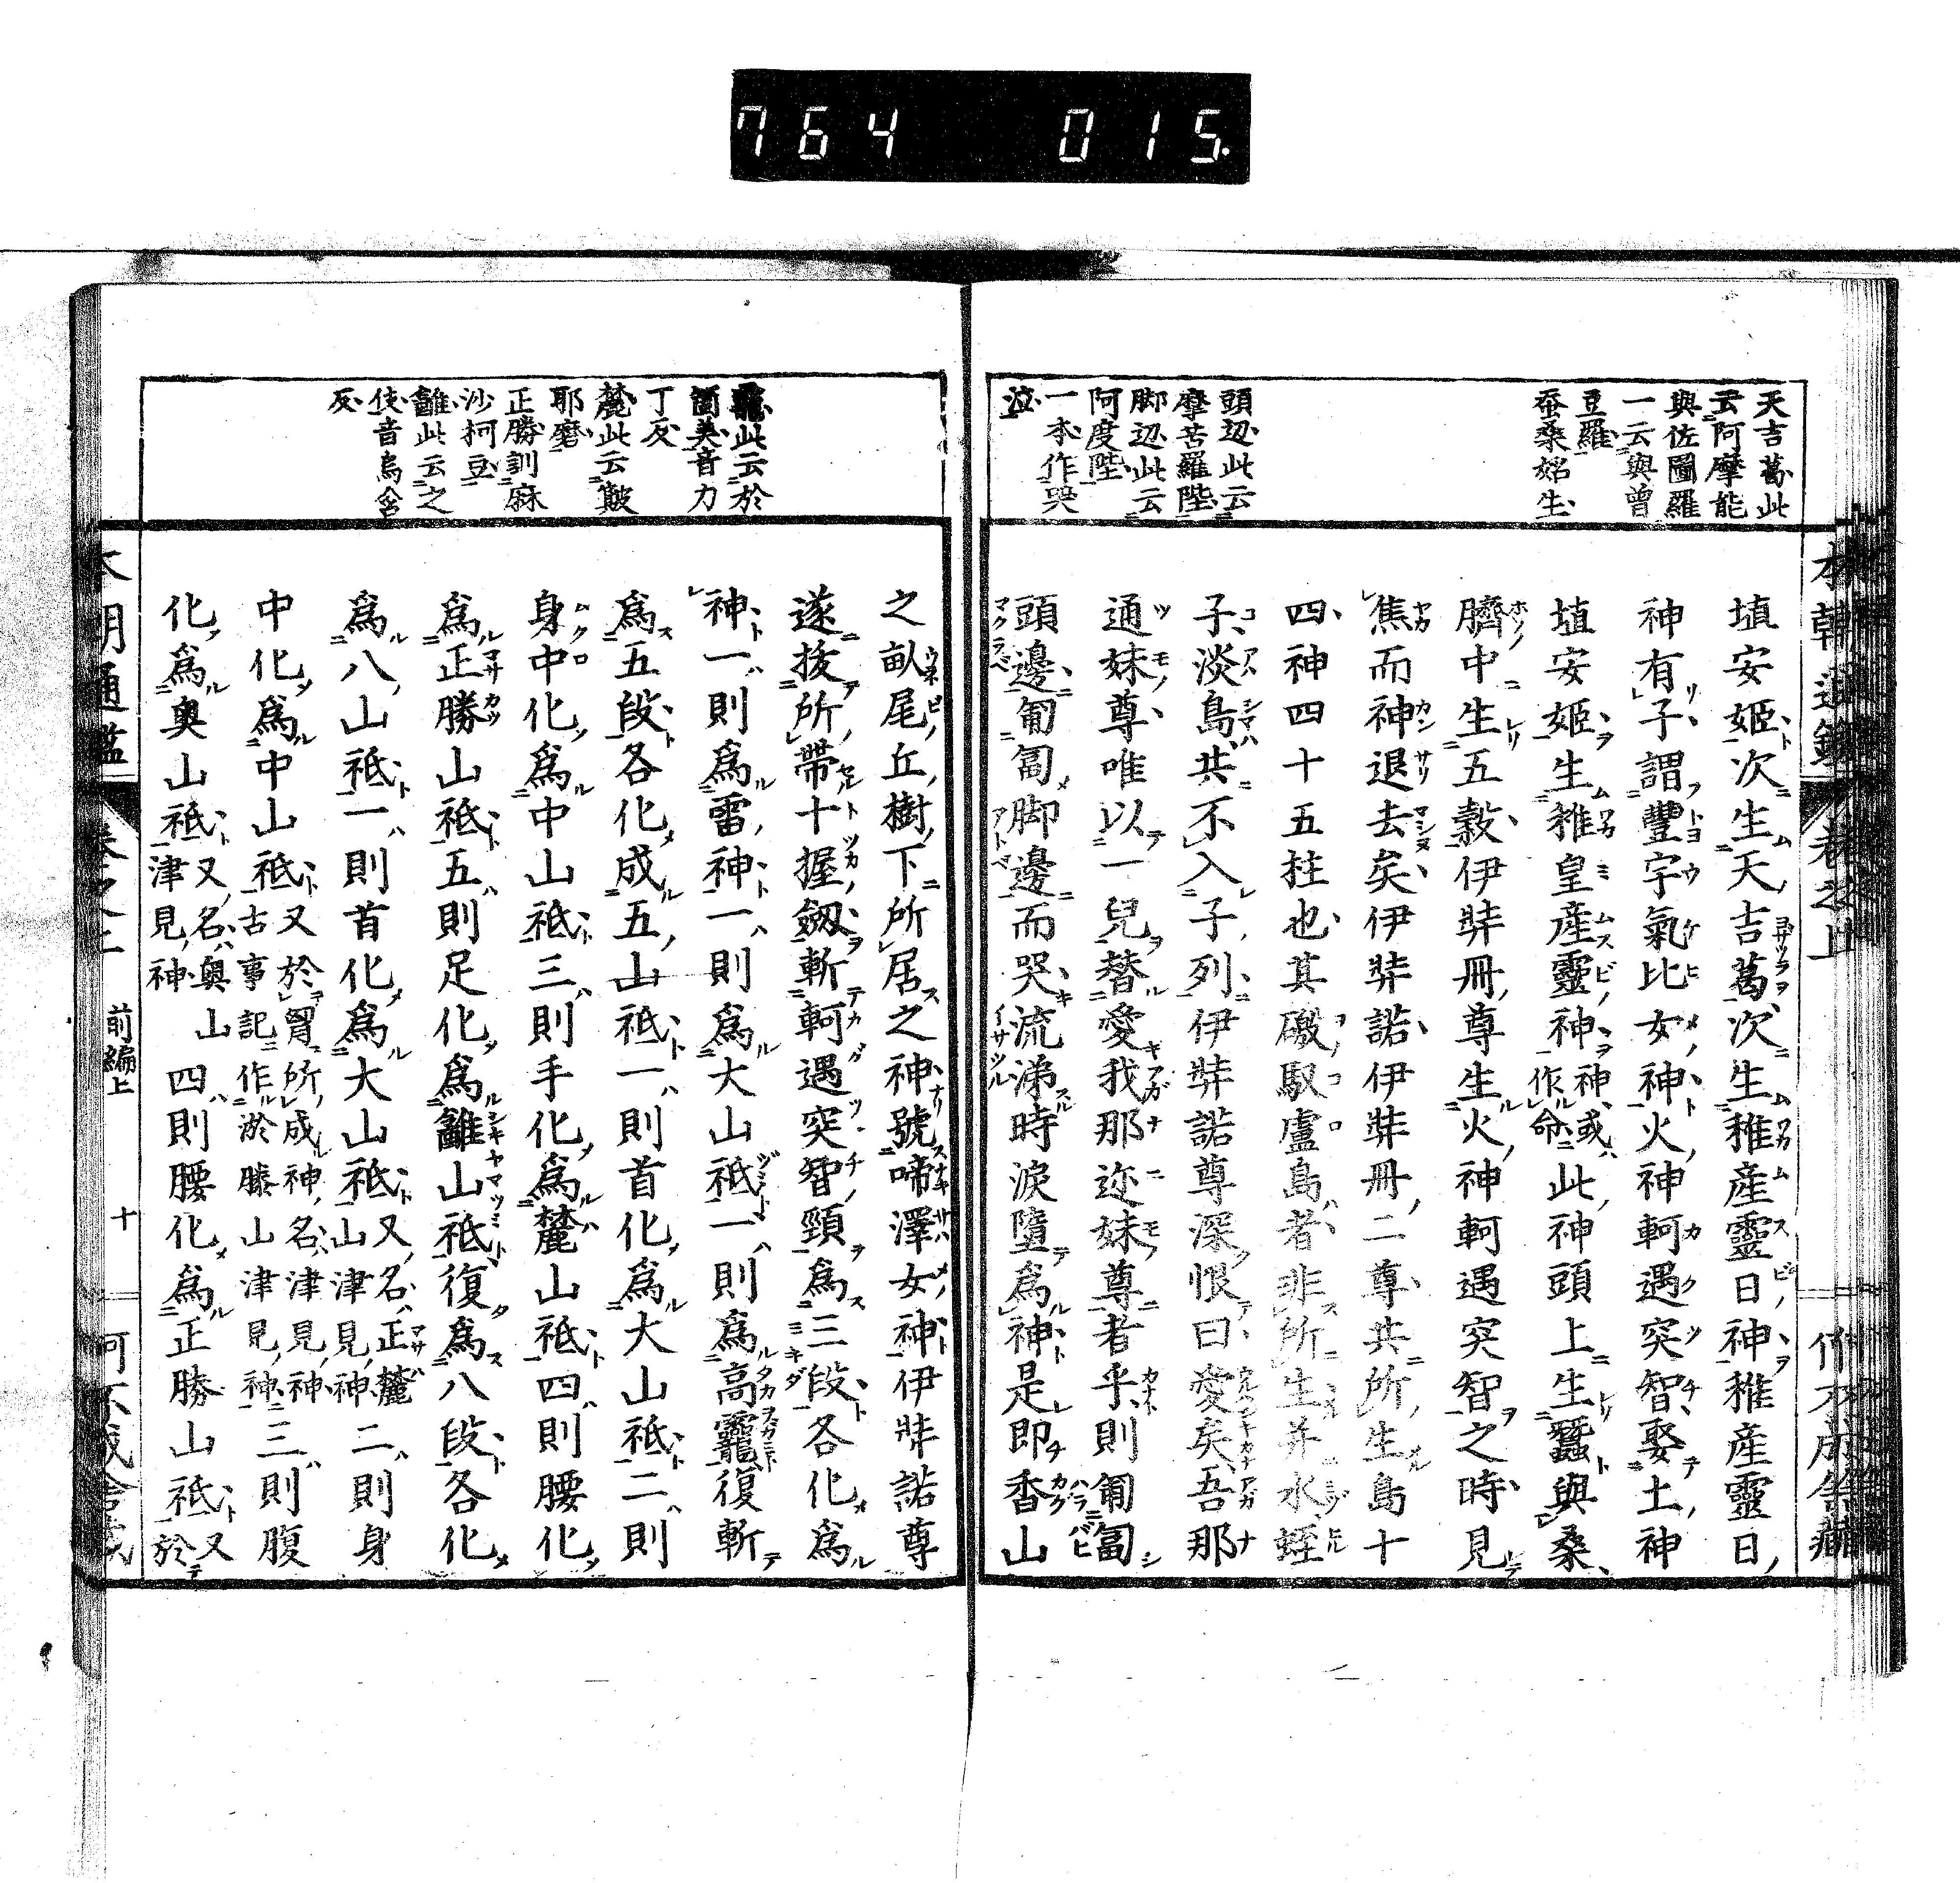 764 015.
天吉葛此
云阿摩能
與佐圖羅
一云與曾
豆羅
蚕桑始生
頭辺此云
摩苦羅陛
脚辺此云
阿度陛
一本作哭
泣
埴安姬次生天吉葛次生稚產靈日神稚產靈日
神有子謂豐宇氣比女神火神軻遇突智娶土神
埴安姬生稚皇產靈神神或作命此神頭上生蠶與桑
臍中生五穀伊弉冊尊生火神軻遇突智之時見
焦而神退去矣伊弉諾伊弉冊二尊共所生島十
四神四十五柱也其磤馭盧島者非所生并水蛭
子淡島共不入子列伊弉諾尊深恨曰愛矣吾那
通妹尊唯以一兒替愛我那迩妹尊者乎則匍匐
頭邊匍匐脚邊而哭流涕時淚墮為神是即香山
龗此云於
箇美音力
丁反
麓此云簸
耶磨
正勝訓麻
沙柯豆
䨄此云之
伎音烏含
反
之畝尾丘樹下所居之神號啼澤女神伊弉諾尊
遂拔所帶十握劔斬軻遇突智頸為三段各化為
神一則為雷神一則為大山祇一則為高龗復斬
為五段各化成五山祇一則首化為大山祇二則
身中化為中山祇三則手化為麓山祇四則腰化
為正勝山祇五則足化為䨄山祇復為八段各化
為八山祇一則首化為大山祇又名正麓山津見神二則身
中化為中山祇又於胷所成神名津見神古事記作淤滕山津見神三則腹
化為奧山祇又名奧山津見神四則腰化為正勝山祇又於
前編上
十